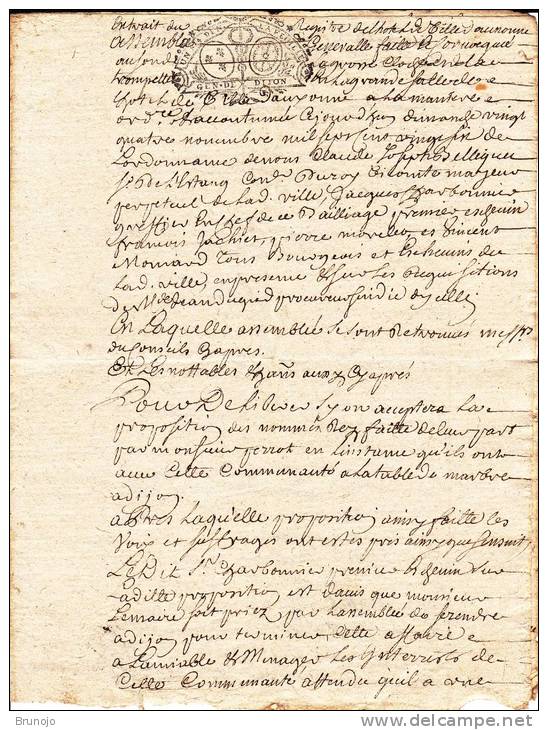 Extrait du Registre de l'hotel de Ville d'auxonne
assemblée Generalle faitte et convoquée
au son de la grosse cloche de la
GEN. DE DIJON
hotel de Ville d'auxonne a la maniere
accoutumée cejourd'huy dimanche vingt
quatre novembre mil sept cens vingt six de
Lordonnance de nous Claude Joseph
Sr de l'Estang Conr Du roy Vicomte majeur
perpetuel de lad. ville, Jacques Charbonnier
greffier en chef de ce Bailliage premier echevin
francois Jachiet, pierre morelet, et Vincent
Monard Tous Bourgeois et Echevins de
Lad. ville, en presence et sur Les Requisitions
de Me procureur sindic dycelle
En Laquelle assemblée se sont retrouvés mess.rs
du Conseils Cyaprés.
Et Les nottables habitans aussy Cyaprés
Pour Deliberer sy on acceptera La
proposition des nommés Rey faitte de leur part
par monsieur perrot en linstance qu'ils ont
avec Cette Communauté a la table de marbre
a dijon.
aprés Laquelle proposition ainsy faitte les
Voix et suffrages ont estés pris ainsy que sensuit
Ledit Sr. Charbonnier premier Echevin sur
laditte proposition est davis que monsieur
Lemaire soit priez par lassemblée de se rendre
a dijon pour terminer Cette affaire
a Lamiable et Menager Les Interrests de
Cette Communauté attendu quil a une
Brunojo
delcampe.net